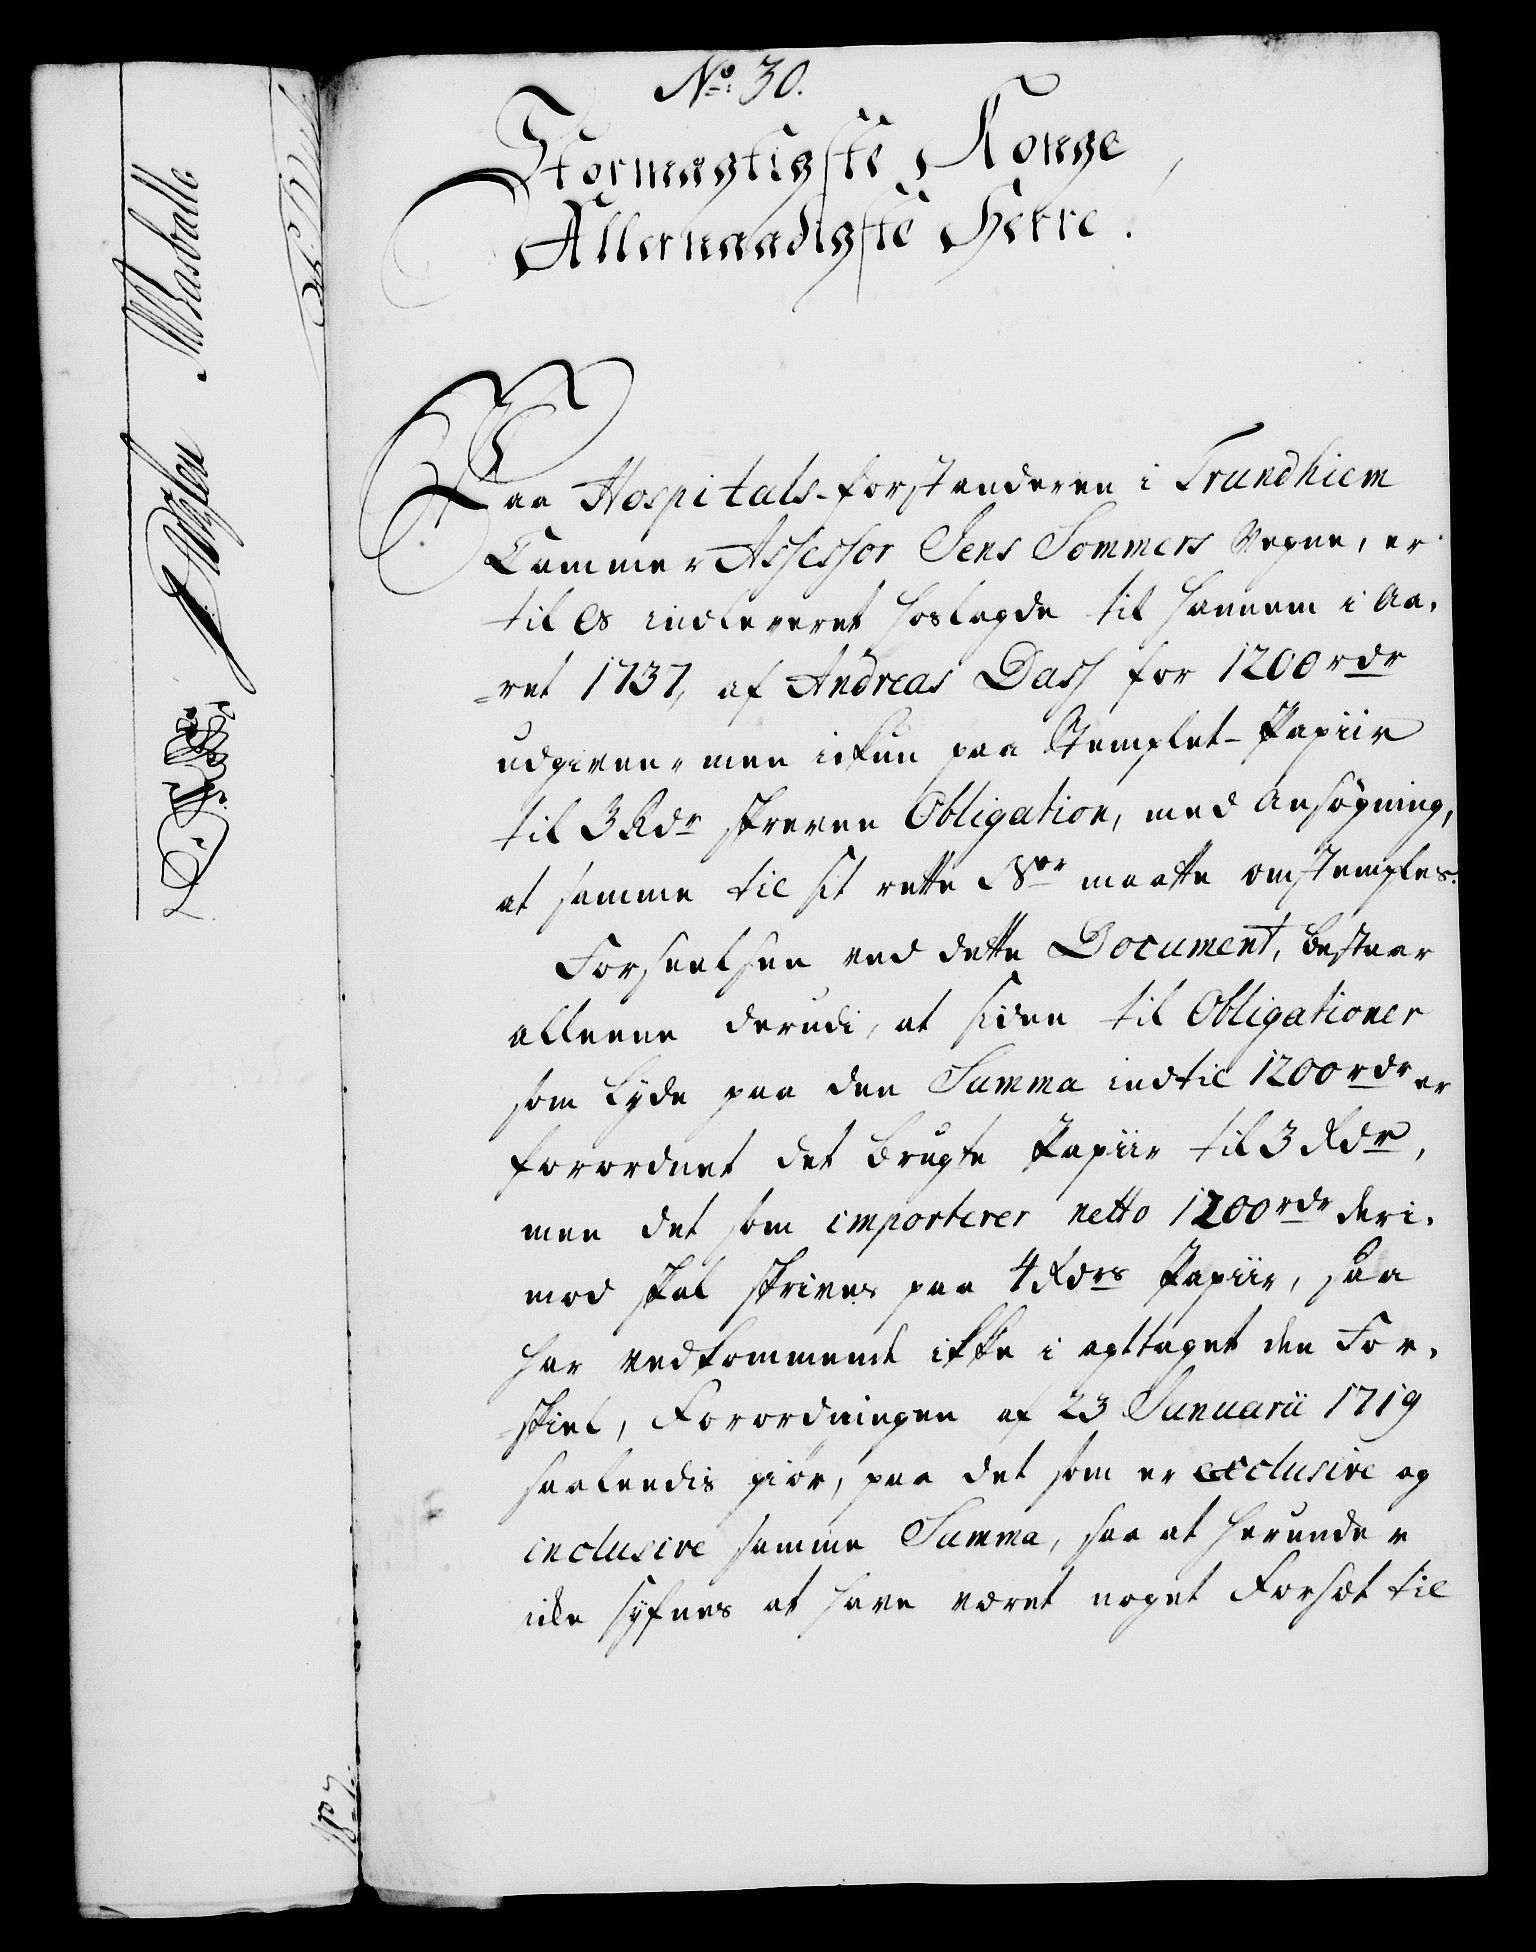 No: 30.
Stormægtigste Konge,
Allernaadigste Herre.
Paa Hospitals-Forstanderen i Trundhiem
Cammer Assessor Jens Sommers Vegne, er
til os indleveret hoslagde til hannem i Aa-
ret 1737, af Andreas Dass for 1200 rdr
udgiven, men ickun paa Stemplet-Papiir
til 3 Rdr skreven Obligation, med Ansøgning,
at samme til sit rette maatte omstemples.
Forseelsen ved dette Document, bestaar
alleene derudi, at siden til Obligationer
som lyde paa den Summa indtil 1200 rdr er
forordnet det brugte Papiir til 3 Rdr,
men det som importerer netto 1200 rdr deri-
mod skal skrives paa 4 Rdrs Papiir, saa
har vedkommende ikke i agttaget den For-
skiel, Forordningen af 23 Januarii 1719
saaleedis giør, paa det som er exclusive og
inclusive samme Summa, saa at herunder
icke synes at have været noget Forsæt til